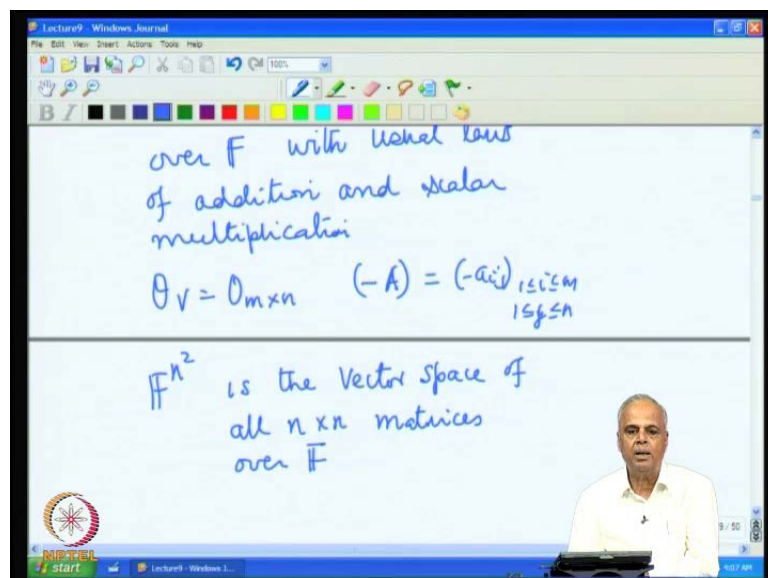 Lecture9 - Windows Journal
File Edit View Insert Actions Tools Help
100%
B I
over F with usual laws
of addition and scalar
multiplication
θ_V = 0_{m×n} (-A) = (-a_{ij}) 1≤i≤m
1≤j≤n
𝔽^{n^2} is the vector space of
all n×n matrices
over 𝔽
9 / 50
NPTEL
start Lecture9 - Windows J...
4:07 AM